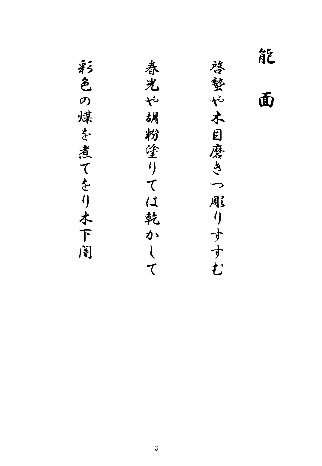 能面
啓蟄や木目磨きつ彫りすすむ
春光や胡粉塗りては乾かして
彩色の煤を煮てをり木下闇